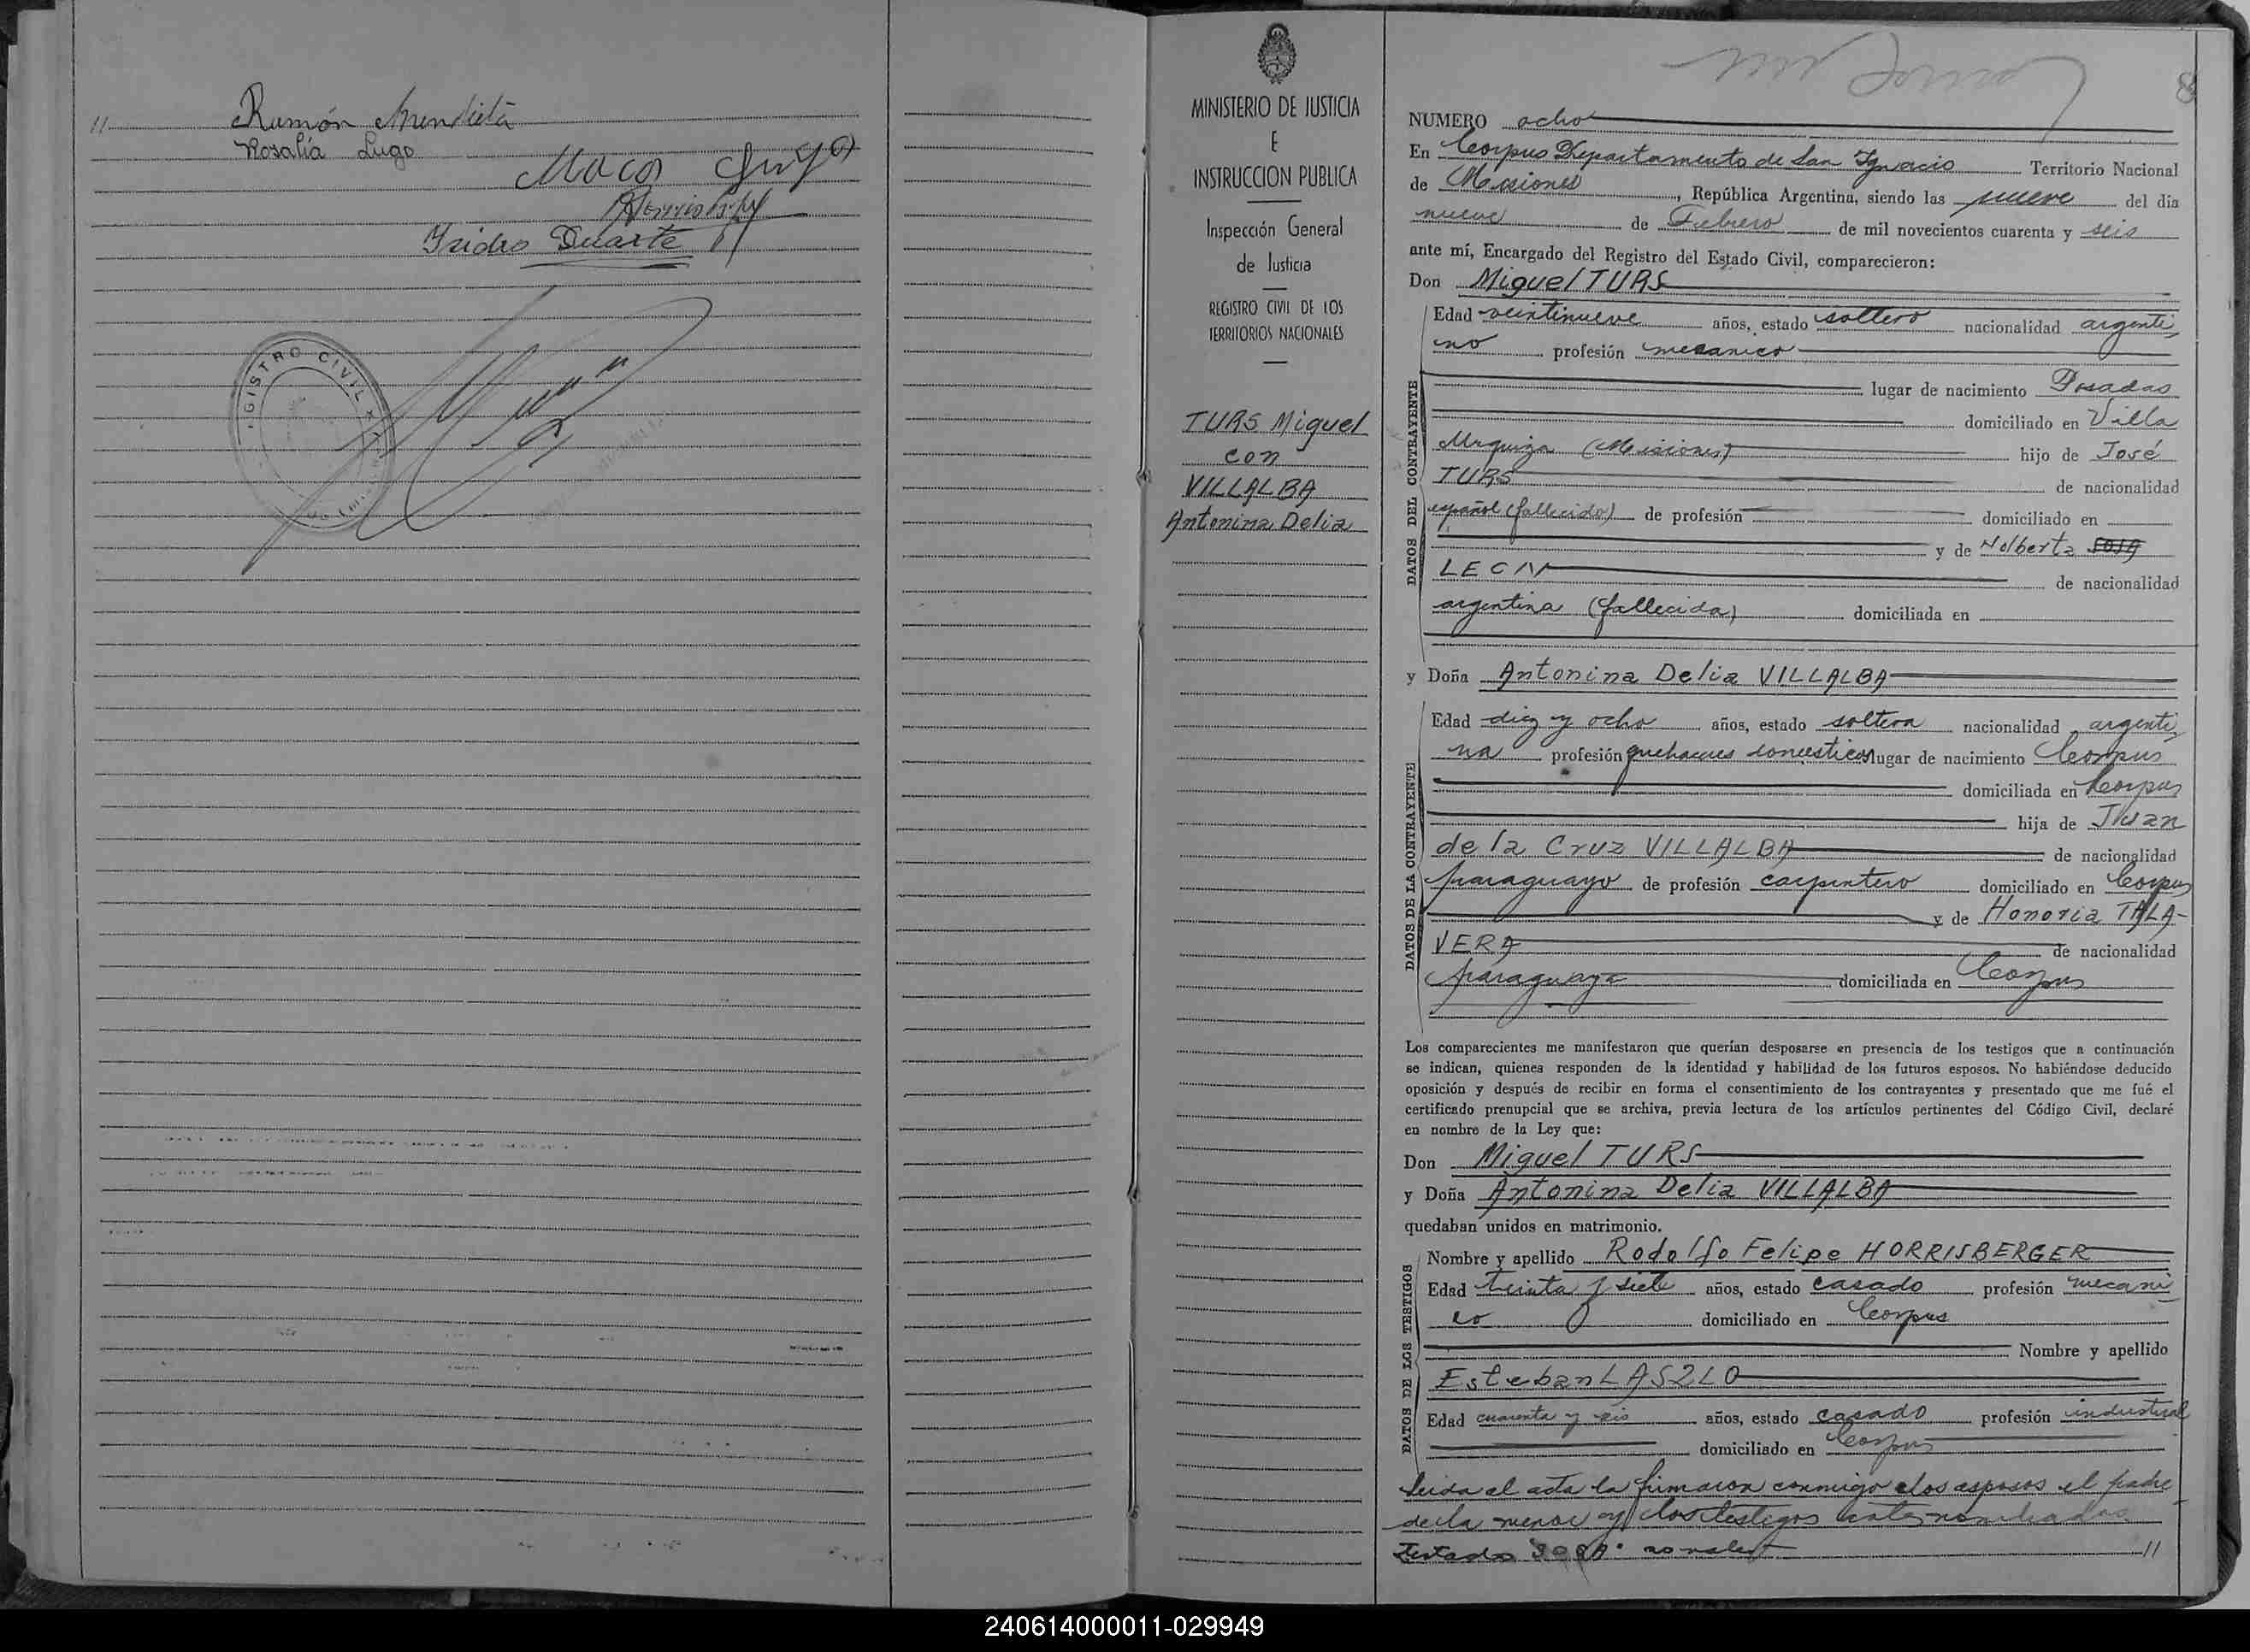 11 Ramón Mendieta
Rosalía Lugo
Isidro Duarte
REGISTRO CIVIL
MINISTERIO DE JUSTICIA
E
INSTRUCCION PUBLICA
Inspección General
de Justicia
REGISTRO CIVIL DE LOS
TERRITORIOS NACIONALES
TURS Miguel
con
VILLALBA
Antonina Delia
NUMERO ocho
En Corpus Departamento de San Ignacio Territorio Nacional
de Misiones, República Argentina, siendo las nueve del día
nueve de Febrero de mil novecientos cuarenta y seis
ante mí, Encargado del Registro del Estado Civil, comparecieron:
Don Miguel TURS
DATOS DEL CONTRAYENTE
Edad veintinueve años, estado soltero nacionalidad argenti-
no profesión mecanico
lugar de nacimiento Posadas
domiciliado en Villa
Urquiza (Misiones) hijo de José
TURS de nacionalidad
español (fallecido) de profesión domiciliado en
y de Nolberta SOSA
LECIN de nacionalidad
argentina (fallecida) domiciliada en
y Doña Antonina Delia VILLALBA
DATOS DE LA CONTRAYENTE
Edad diez y ocho años, estado soltera nacionalidad argenti-
na profesión quehaceres domesticos lugar de nacimiento Corpus
domiciliada en Corpus
hija de Juan
de la Cruz VILLALBA de nacionalidad
paraguayo de profesión carpintero domiciliado en Corpus
y de Honoria TALA-
VERA de nacionalidad
paraguaya domiciliada en Corpus
Los comparecientes me manifestaron que querían desposarse en presencia de los testigos que a continuación
se indican, quienes responden de la identidad y habilidad de los futuros esposos. No habiéndose deducido
oposición y después de recibir en forma el consentimiento de los contrayentes y presentado que me fué el
certificado prenupcial que se archiva, previa lectura de los artículos pertinentes del Código Civil, declaré
en nombre de la Ley que:
Don Miguel TURS
y Doña Antonina Delia VILLALBA
quedaban unidos en matrimonio.
DATOS DE LOS TESTIGOS
Nombre y apellido Rodolfo Felipe HORRISBERGER
Edad treinta y siete años, estado casado profesión mecani-
co domiciliado en Corpus
Nombre y apellido
Esteban LASZLO
Edad cuarenta y seis años, estado casado profesión industrial
domiciliado en Corpus
Leida el acta la firmaron conmigo los esposos el padre
de la menor y los testigos antes nombrados
Testado SOSA no vale 11
240614000011-029949